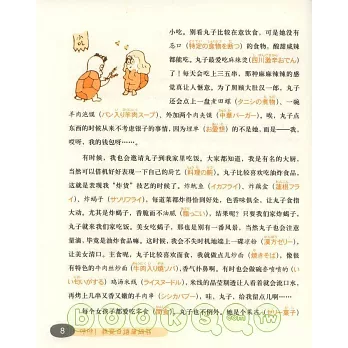 小吃
小吃。别看丸子比较在意饮食，可是她没有
忌口（特定の食物を断つ）的食物，酸甜咸辣
都能吃。丸子最爱吃麻辣烫（四川激辛おでん）
了！每天会吃上三五串，那种麻麻辣辣的感
觉真让人惬意。为了照顾大肚汉一郎，丸子
还会点上一盘煮田螺（タニシの煮物），一碗
羊肉泡馍（パン入り羊肉スープ），外加两个肉夹馍（中華バーガー）。唉，丸子点
东西的时候从来不考虑银子的事情，因为埋单（お愛想）的不是她，而是——我，
哎呀，我的钱包呀……。
有时候，我也会邀请丸子到我家里吃饭。大家都知道，我是有名的大厨，
当然可以借机好好表现一下自己的厨艺（料理の腕）。丸子比较喜欢吃油炸食品，
这就是表现我“炸货”技艺的时候了，炸鱿鱼（イカフライ）、炸藕盒（蓮根フラ
イ）、炸蝎子（サソリフライ），每道菜都炸得恰到好处，色香味俱全，让丸子食指
大动，尤其是炸蝎子，香脆而不油腻（脂っこい），结果呢？只要我们家炸蝎子，
丸子就来我们家吃饭。美女吃蝎子，那也是别有一番风景，当然丸子也会注意
量油，毕竟是油炸食品嘛。这时候，我会不失时机地端上一碟凉粉（漢方ゼリー），
让美女清口。主食呢，丸子比较喜欢面食，我就做点儿炒面（焼きそば），像很
有特色的牛肉丝炒面（牛肉入り焼ソバ），香气扑鼻啊，有时也会做碗香喷喷的（い
いにおいがする）鸡汤米线（ライスヌードル），米线的晶莹剔透让人看着就会流口水，
再烤上几串又香又嫩的羊肉串（シシカバブー），哇，丸子，给我留点儿啊……
每个女孩子都爱吃零食（間食），丸子也不例外。她不是个爱甜
8